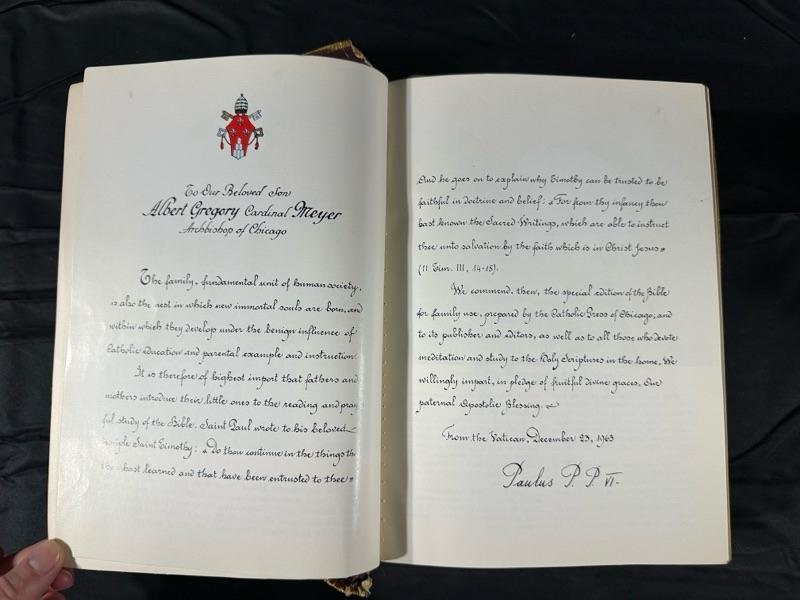 To Our Beloved Son
Albert Gregory Cardinal Meyer
Archbishop of Chicago
The family, fundamental unit of human society,
is also the nest in which new immortal souls are born, and
within which they develop under the benign influence of
Catholic education and parental example and instruction.
It is therefore of highest import that fathers and
mothers introduce their little ones to the reading and pray
ful study of the Bible. Saint Paul wrote to his beloved
Saint Timothy: « Do thou continue in the things
hast learned and that have been entrusted to thee »
And he goes on to explain why Timothy can be trusted to be
faithful in doctrine and belief: « For from thy infancy thou
hast known the Sacred Writings, which are able to instruct
thee unto salvation by the faith which is in Christ Jesus »
(II Tim. III, 14-15).
We commend, then, the special edition of the Bible
for family use, prepared by the Catholic Press of Chicago; and
to its publisher and editors, as well as to all those who devote
meditation and study to the Holy Scriptures in the home, We
willingly impart, in pledge of fruitful divine graces, Our
paternal Apostolic Blessing.
From the Vatican, December 23, 1963
Paulus P. P. VI.